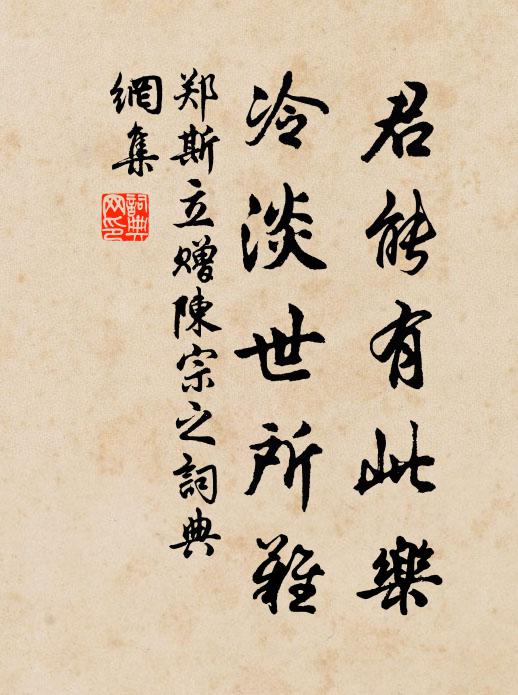 君能有此樂
冷淡世所難
郑斯立赠陳宗之詞典
網集
詞典網印